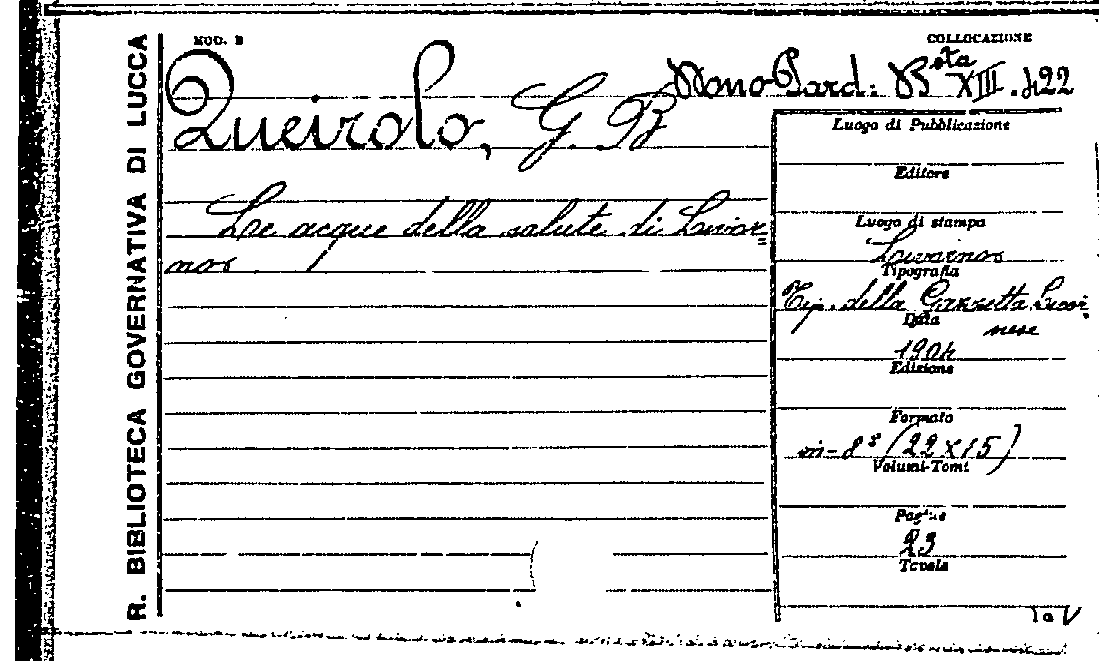 R. BIBLIOTECA GOVERNATIVA DI LUCCA
MOD. B
COLLOCAZIONE
Mono Pard: Bsta XIII. 422
Queirolo, G. B
Le acque della salute di Livor=
no
Luogo di Pubblicazione
Editore
Luogo di stampa
Livorno
Tipografia
Tip. della Gazzetta Livor
nese
Data
1904
Edizione
Formato
in-8° (22x15)
Volumi-Tomi
Pagine
23
Tavole